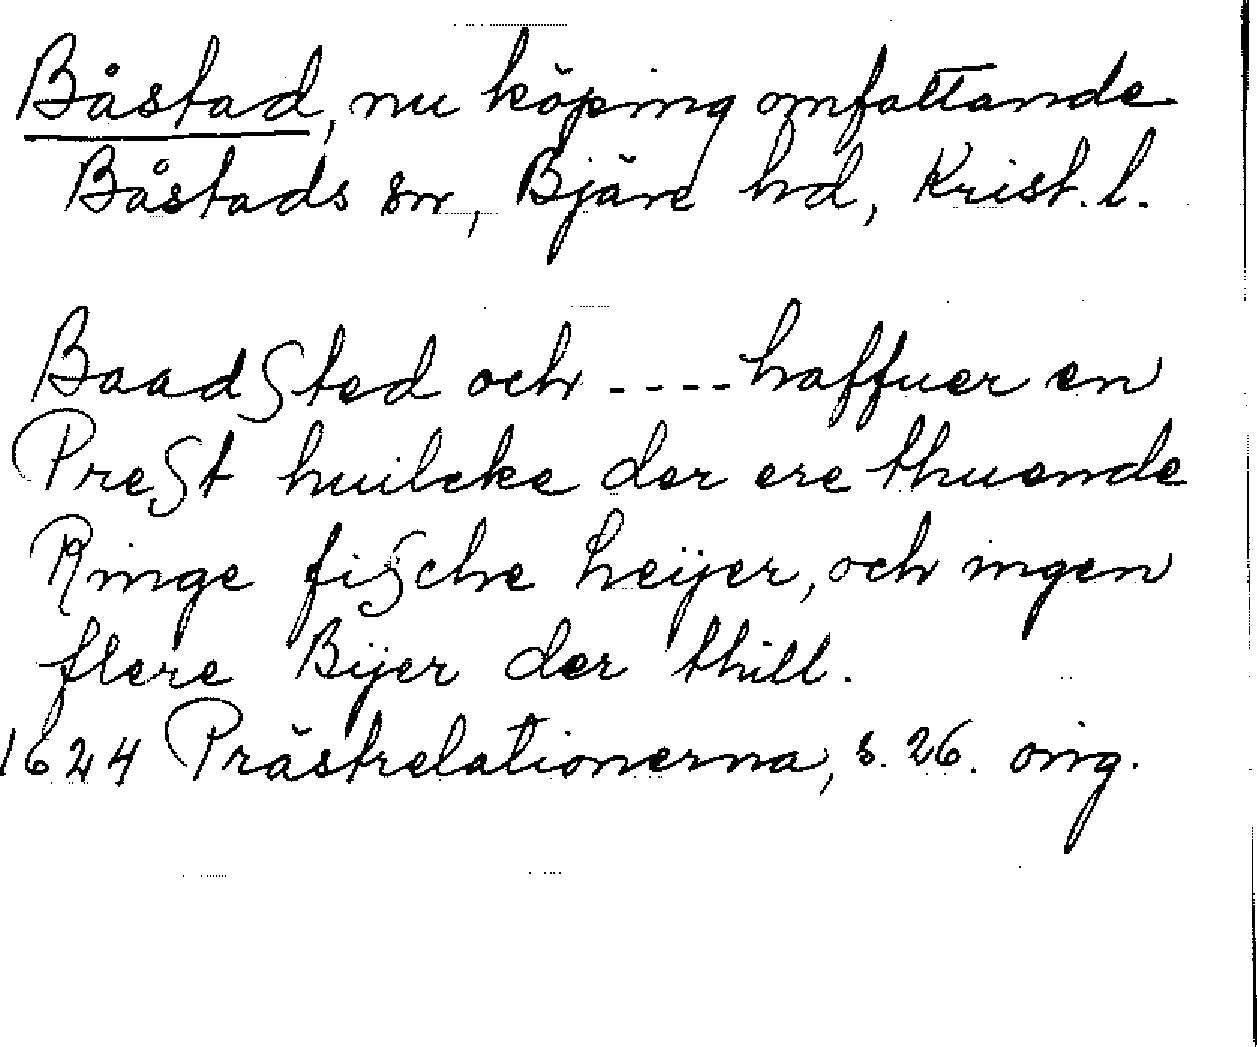 Båstad, nu köping omfattande
Båstads sn, Bjäre hd, Krist. l.
BaadSted och ---- haffuer en
PreSt huilcke der ere thuende
Ringe fiSche leijer, och ingen
flere Bijer der thill.
1624 Prästrelationerna, s. 26. orig.